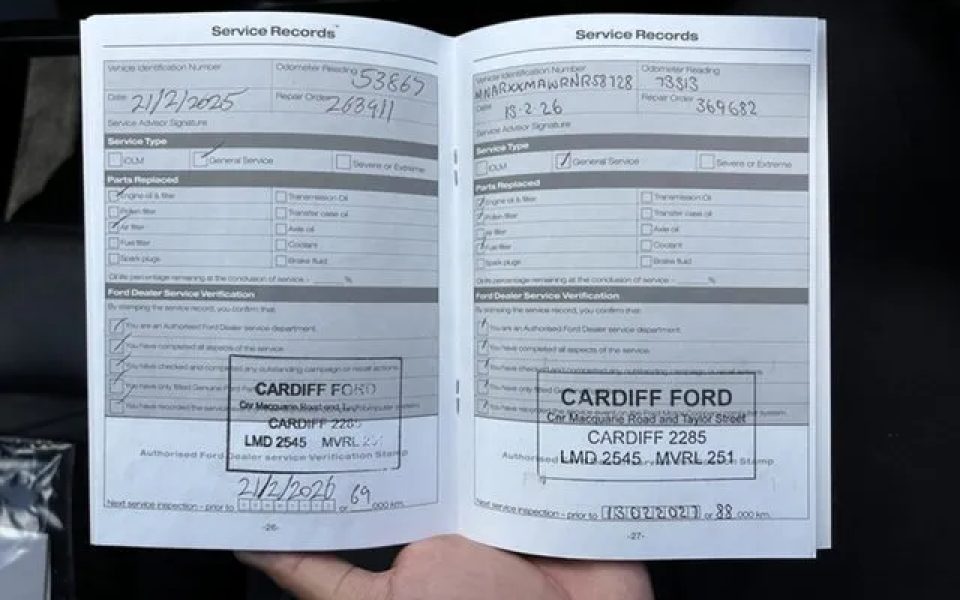 Service Records
Vehicle Identification Number
Odometer Reading 53867
Date 21/2/2025
Repair Order 263911
Service Advisor Signature
Service Type
IOLM
General Service
Severe or Extreme
Parts Replaced
Engine oil & filter
Transmission Oil
Pollen filter
Transfer case oil
Air filter
Axle oil
Fuel filter
Coolant
Spark plugs
Brake fluid
Oil life percentage remaining at the conclusion of service - %
Ford Dealer Service Verification
By stamping the service record, you confirm that:
You are an Authorised Ford Dealer service department.
You have completed all aspects of the service.
You have checked and completed any outstanding campaign or recall actions.
You have only fitted Genuine Ford
You have recorded the service
CARDIFF FORD
Cnr Macquarie Road and
CARDIFF 2285
LMD 2545 MVRL
Authorised Ford Dealer service Verification Stamp
21/2/2026 69
Next service inspection - prior to or ,000 km.
-26-
Service Records
Vehicle Identification Number
MNARXXMAWRNR58128
Odometer Reading
73813
Date 13-2-26
Repair Order 369682
Service Advisor Signature
Service Type
IOLM
General Service
Severe or Extreme
Parts Replaced
Engine oil & filter
Transmission Oil
Pollen filter
Transfer case oil
Air filter
Axle oil
Fuel filter
Coolant
Spark plugs
Brake fluid
Oil life percentage remaining at the conclusion of service - %
Ford Dealer Service Verification
By stamping the service record, you confirm that:
You are an Authorised Ford Dealer service department.
You have completed all aspects of the service.
You have checked and completed any outstanding campaign or recall actions.
You have only fitted
You have
CARDIFF FORD
Cnr Macquarie Road and Taylor Street
CARDIFF 2285
LMD 2545 MVRL 251
Stamp
Next service inspection - prior to 13022027 or 88 ,000 km.
-27-